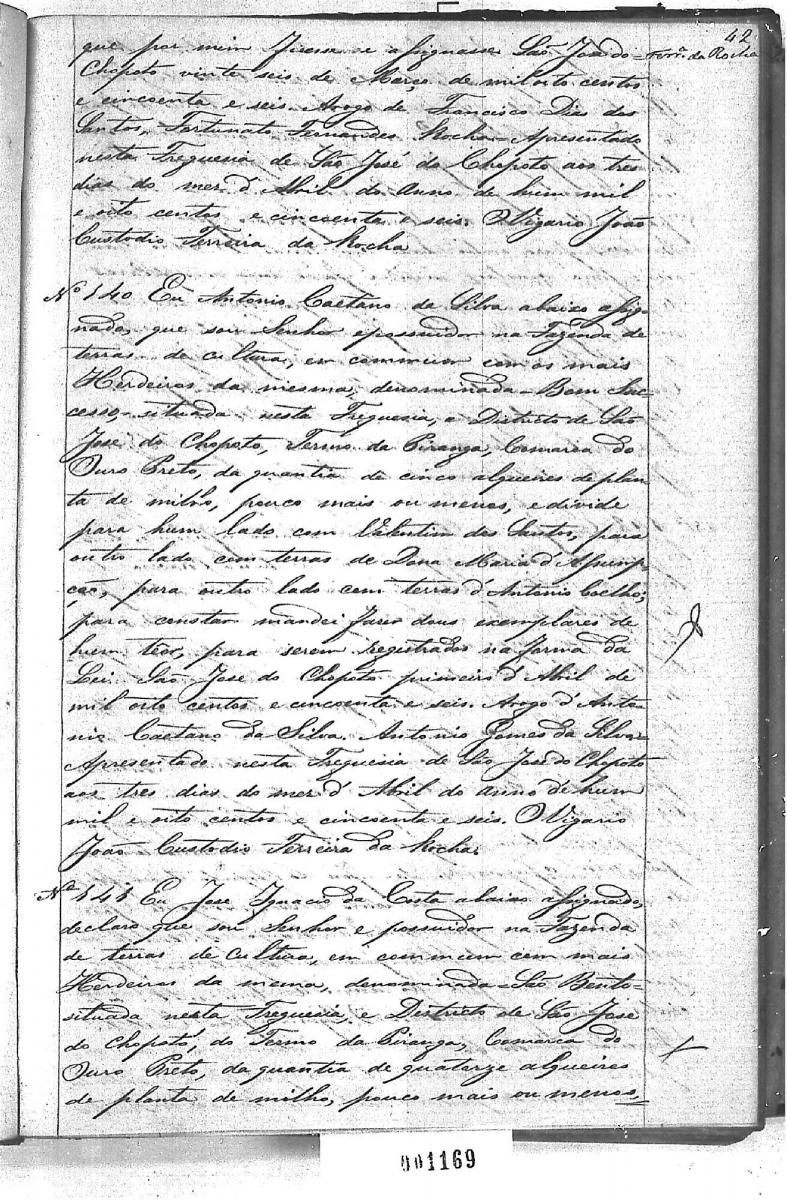 42
Ferra. da Rocha
que por mim fizesse e assignasse São José do
Chopoto vinte seis de Março de mil oito centos
e cincoenta e seis. Arogo de Francisco Dias dos
Santos, Fortunato Fernandes Rocha - Apresentado
nesta Freguesia de São José do Chopoto aos tres
dias do mez d'Abril do Anno de hum mil
e oito centos e cincoenta e seis. O Vigario João
Custodio Ferreira da Rocha
No. 140 Eu Antonio Caetano da Silva abaixo assig-
nado, que sou Senhor epossuidor na Fazenda de
terras de cultura, em commum com os mais
Herdeiros da mesma, denominada - Bom Suc-
cesso, situada nesta Freguesia, e Districto de São
José do Chopoto, Termo da Piranga, Comarca do
Ouro Preto, da quantia de cinco alqueires de plan
ta de milho, pouco mais ou menos, e divide
para hum lado com Valentim dos Santos, para
outro lado com terras de Dona Maria d'Assump-
ção, para outro lado com terras d'Antonio Coelho;
para constar mandei fazer dous exemplares de
hum teor, para serem registrados na forma da
Lei. São José do Chopoto primeiro d'Abril de
mil oito centos e cincoenta e seis. Arogo d'Anto-
nio Caetano da Silva. Antonio Gomes da Silva -
Apresentado nesta Freguesia de São José do Chopoto
aos tres dias do mez d'Abril do anno de hum
mil e oito centos e cincoenta e seis. O Vigario
João Custodio Ferreira da Rocha.
No. 141 Eu José Ignacio da Costa abaixo assignado,
declaro que sou Senhor e possuidor na Fazenda
de terras de cultura, em commum com mais
Herdeiros da mesma, denominada - São Bento -
situada nesta Freguesia, e Districto de São José
do Chopotó, do Termo da Piranga, Comarca do
Ouro Preto, da quantia de quatorze alqueires
de planta de milho, pouco mais ou menos,
001169